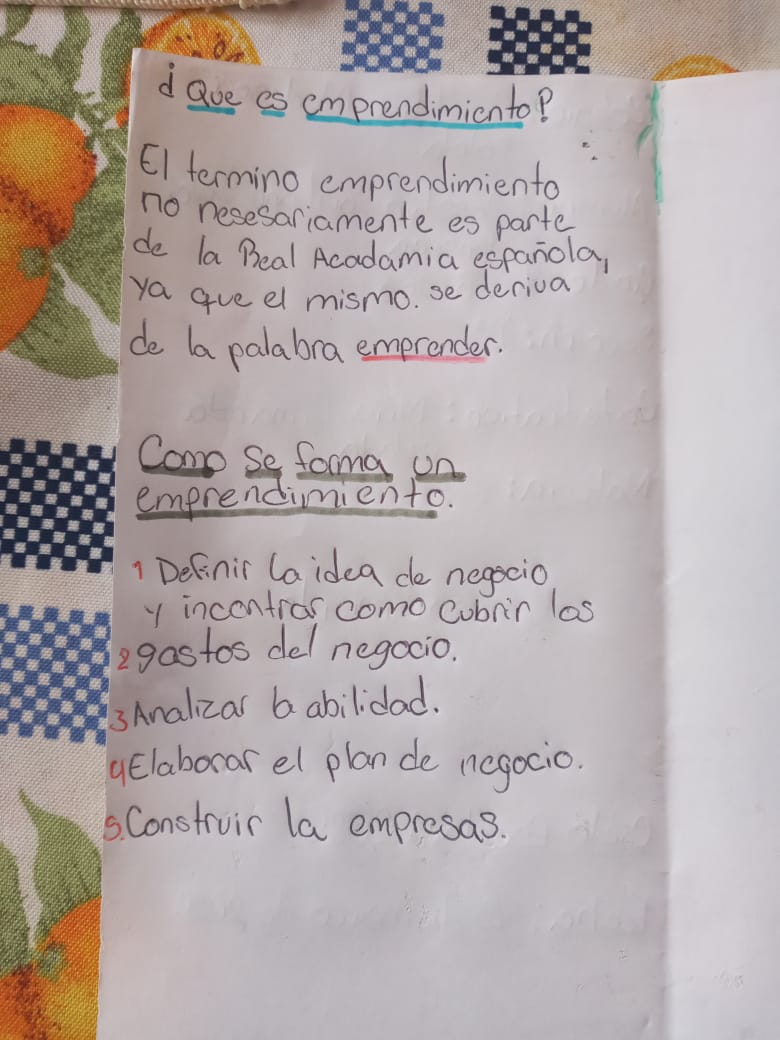 ¿Que es emprendimiento?
El termino emprendimiento
no nesesariamente es parte
de la Real Acadamia española,
ya que el mismo. se deriva
de la palabra emprender.
Como se forma un
emprendimiento.
1 Definir la idea de negocio
y incontrar como cubrir los
2 gastos del negocio.
3 Analizar la abilidad.
4 Elaborar el plan de negocio.
5. Construir la empresas.